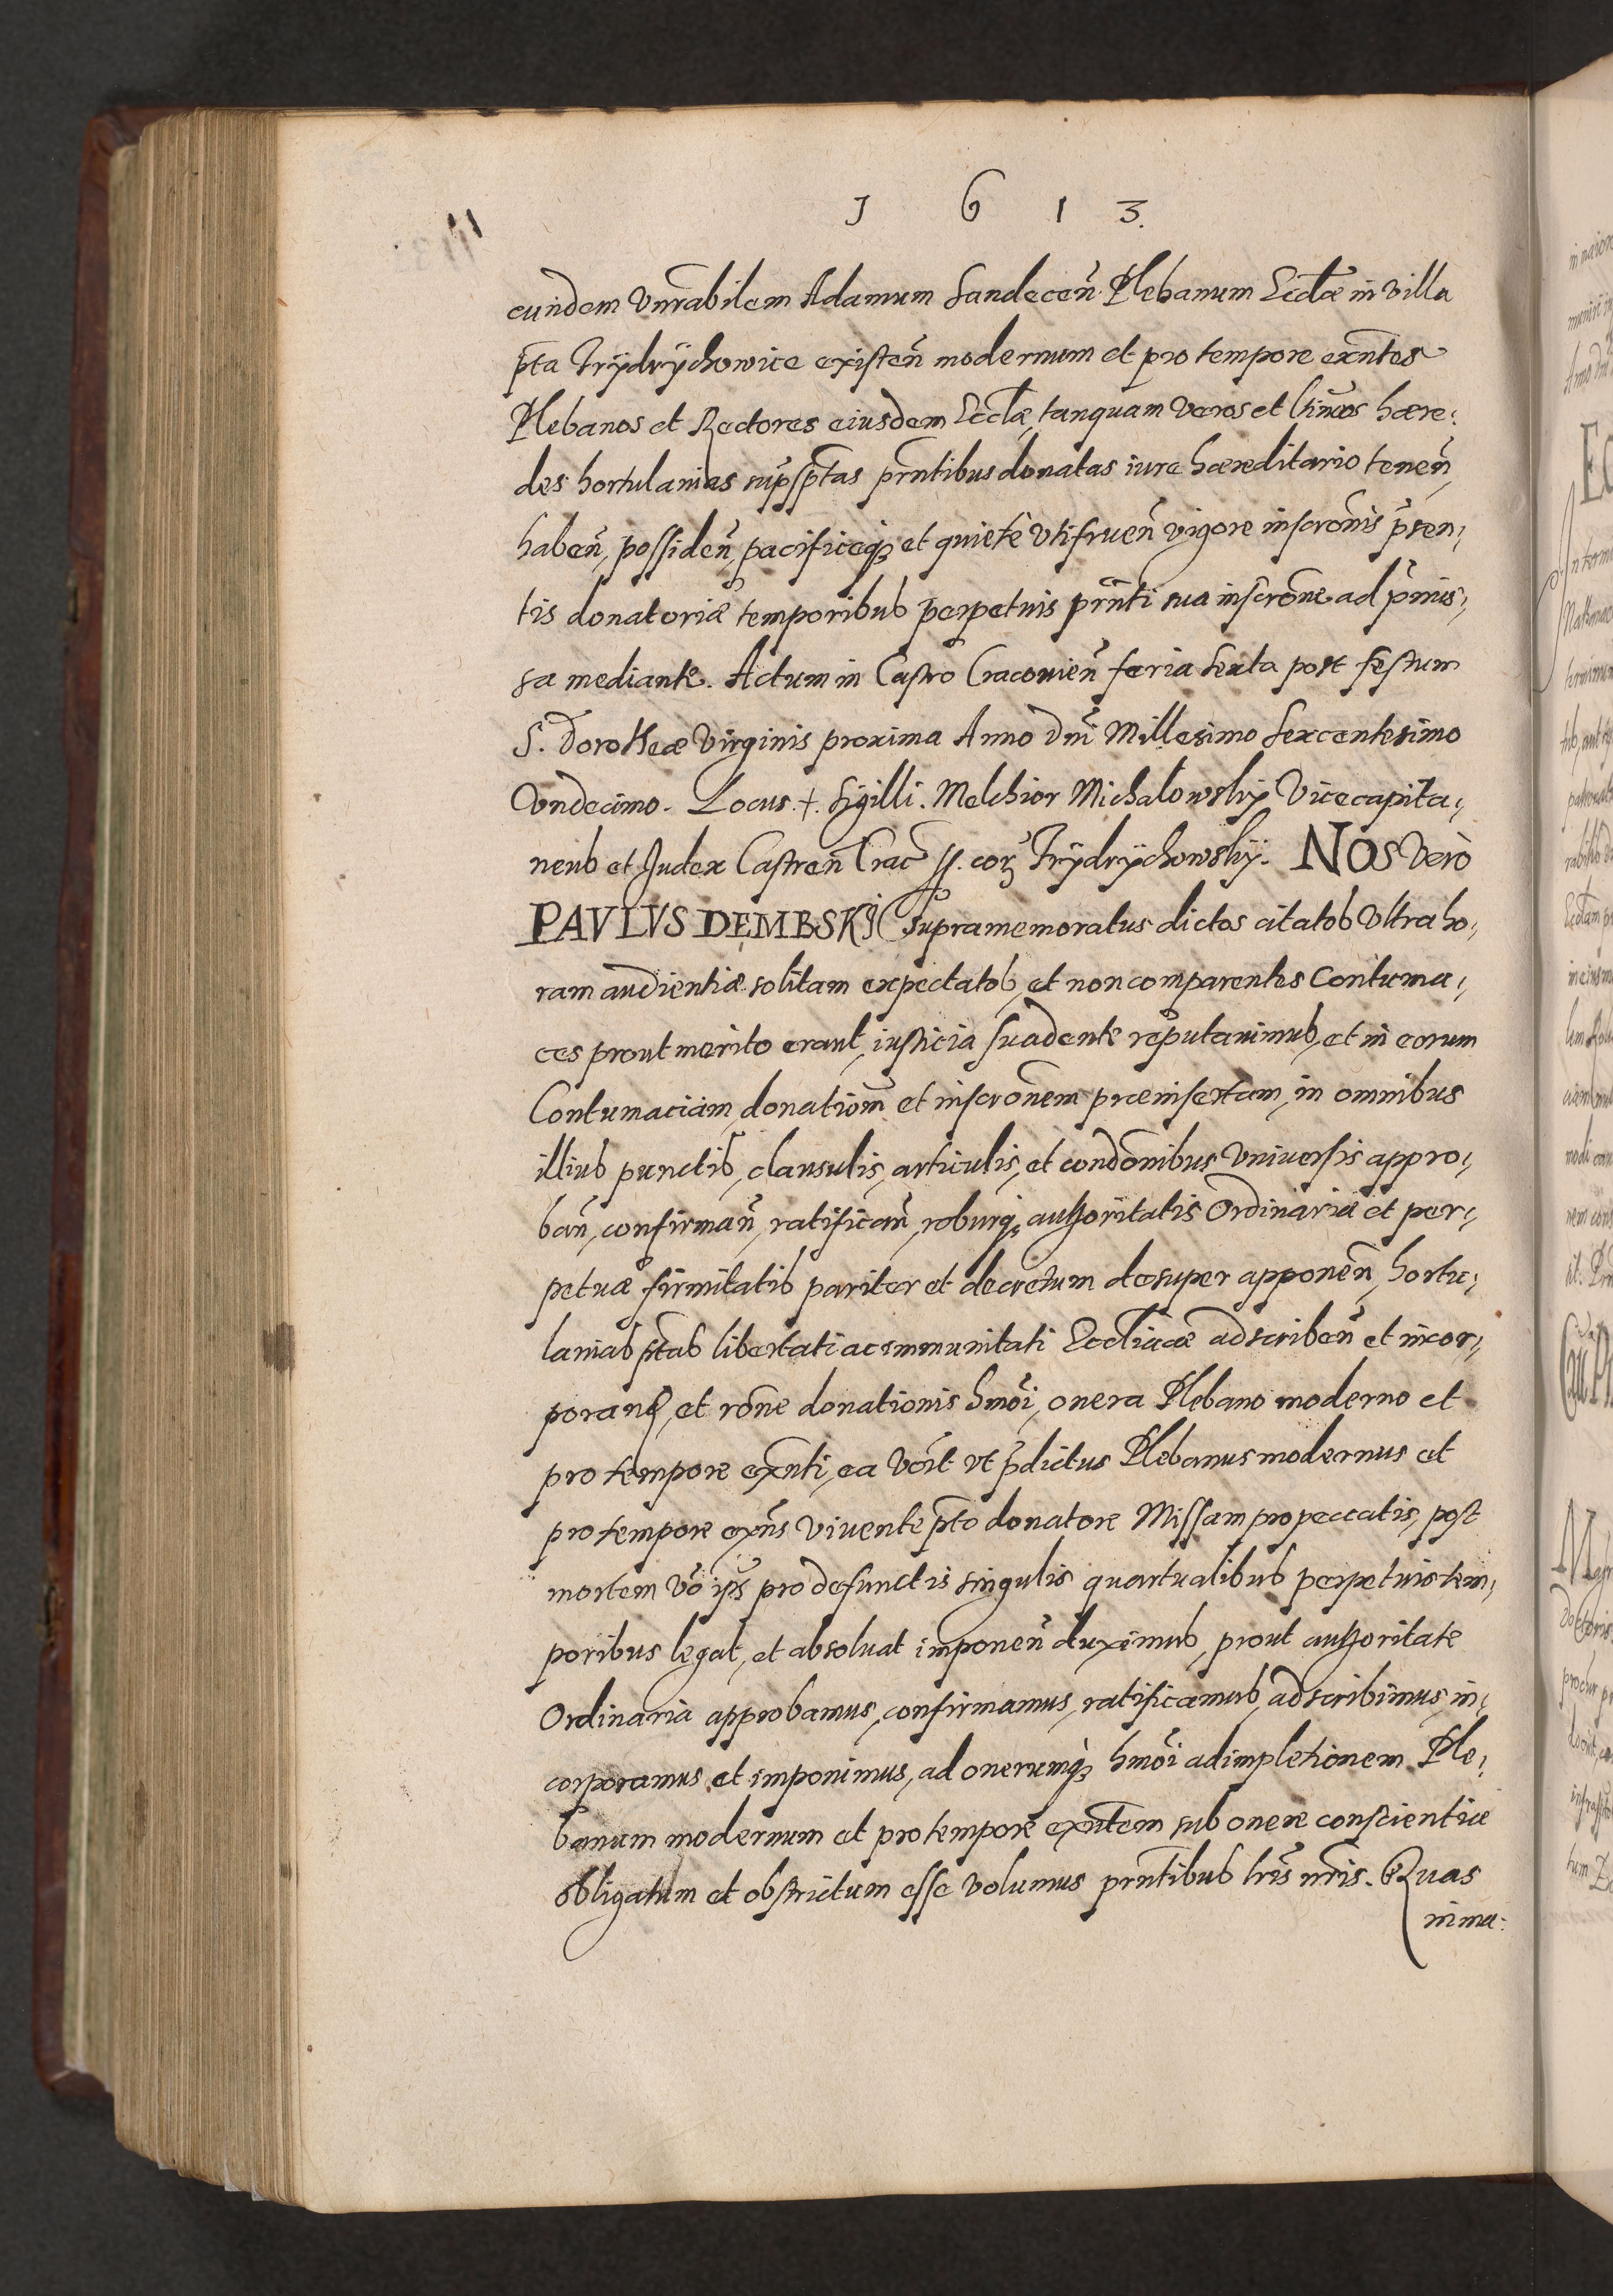 1 6 1 3.
eundem Vnrabilem Adamum Sandeceñ. Plebanum Ecclæ in villa
pta Frÿdrÿchowice existeñ modernum et pro tempore exntes
Plebanos et Rectores eiusdem Ecclæ, tanquam veros et ltimos hære-
des hortulanias supsptas prntibus donatas iure hæreditario teneñ,
habeñ, possideñ, pacificeq3 et quietè vtifrueñ vigore inscronis p̃sen-
tis donatoriæ temporibus perpetuis prnti sua inscrone ad p̃mis-
sa mediante. Actum in Castro Cracouieñ feria sexta post festum
S. Dorotheæ Virginis proxima Anno Dñi Millesimo Sexcentesimo
Vndecimo. Locus .+. Sigilli. Melchior Michałowskÿ Vicecapita-
neus et Judex Castreñ Crac ss. cor3 Frÿdrÿchowskÿ. NOS Verò
PAVLVS DEMBSKI supramemoratus dictos citatos vltra ho-
ram audientiæ solitam expectatos, et non comparentes Contuma-
ces prout merito erant, iusticia suadente reputauimus, et in eorum
Contumaciam, donationm et inscronem præinsertam, in omnibus
illius punctis, clausulis, articulis, et condonibus vniuersis appro-
bañ, confirmañ, ratificañ, roburq3 authoritatis Ordinariæ et per-
petuæ firmitatis pariter et decretum desuper apponeñ, hortu-
lanias sptas libertati ac immunitati Eccliacæ adscribeñ et incor-
porand, et rone donationis hmoi, onera Plebano moderno et
pro tempore exnti, ea vdlt vt p̃dictus Plebanus modernus et
pro tempore exns viuente pto donatore Missam pro peccatis, post
mortem vo ips pro defunctis singulis quartualibus perpetuis tem-
poribus legat, et absoluat imponeñ duximus, prout authoritate
Ordinaria approbamus, confirmamus, ratificamus, adscribimus, in-
corporamus et imponimus, ad onerumq3 hmoi adimpletionem Ple-
banum modernum et pro tempore exntem sub onere conscientiæ
obligatum et obstrictum esse volumus prntibus lris nris. Quas
in ma-